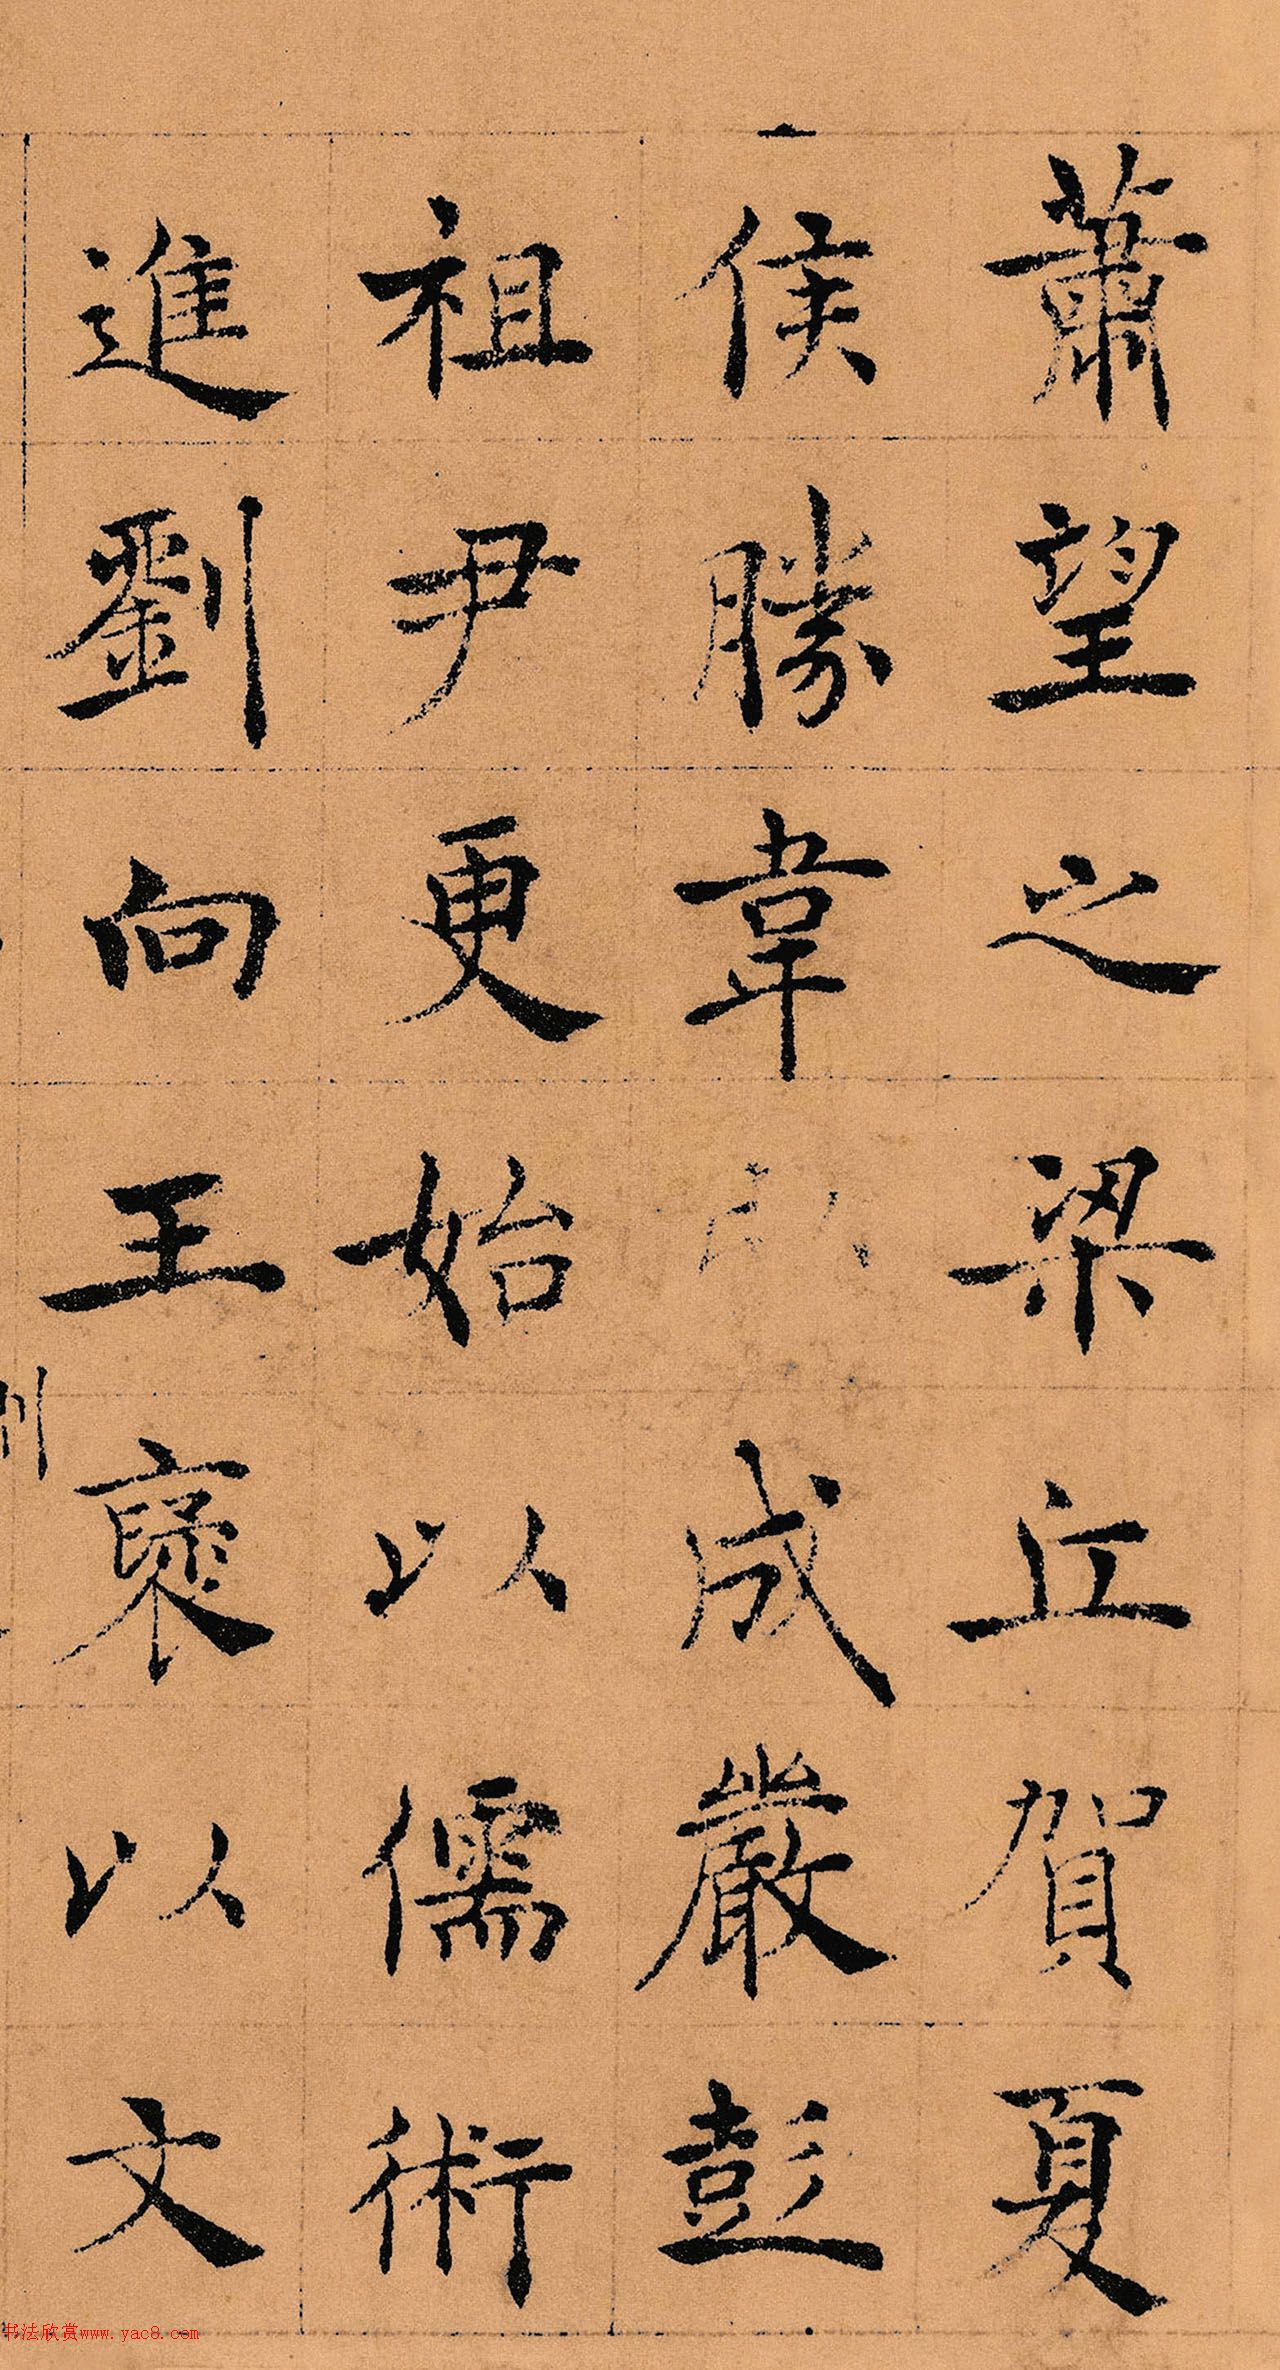 蕭望之梁丘賀夏
侯勝韋成嚴彭
祖尹更始以儒術
進劉向王褒以文
书法欣赏www.yac8.com